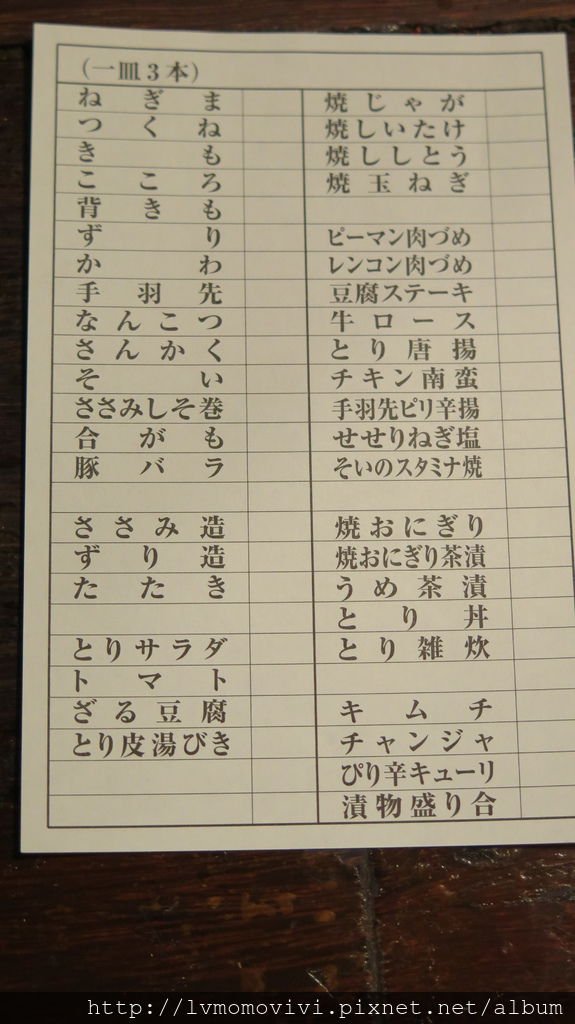 (一皿3本)
ねぎま
つくね
きも
こころ
背きも
ずり
かわ
手羽先
なんこつ
さんかく
そい
ささみしそ巻
合がも
豚バラ
ささみ造
ずり造
たたき
とりサラダ
トマト
ざる豆腐
とり皮湯びき
焼じゃが
焼しいたけ
焼ししとう
焼玉ねぎ
ピーマン肉づめ
レンコン肉づめ
豆腐ステーキ
牛ロース
とり唐揚
チキン南蛮
手羽先ピリ辛揚
せせりねぎ塩
そいのスタミナ焼
焼おにぎり
焼おにぎり茶漬
うめ茶漬
とり丼
とり雑炊
キムチ
チャンジャ
ぴり辛キューリ
漬物盛り合
http://lvmomovivi.pixnet.net/album